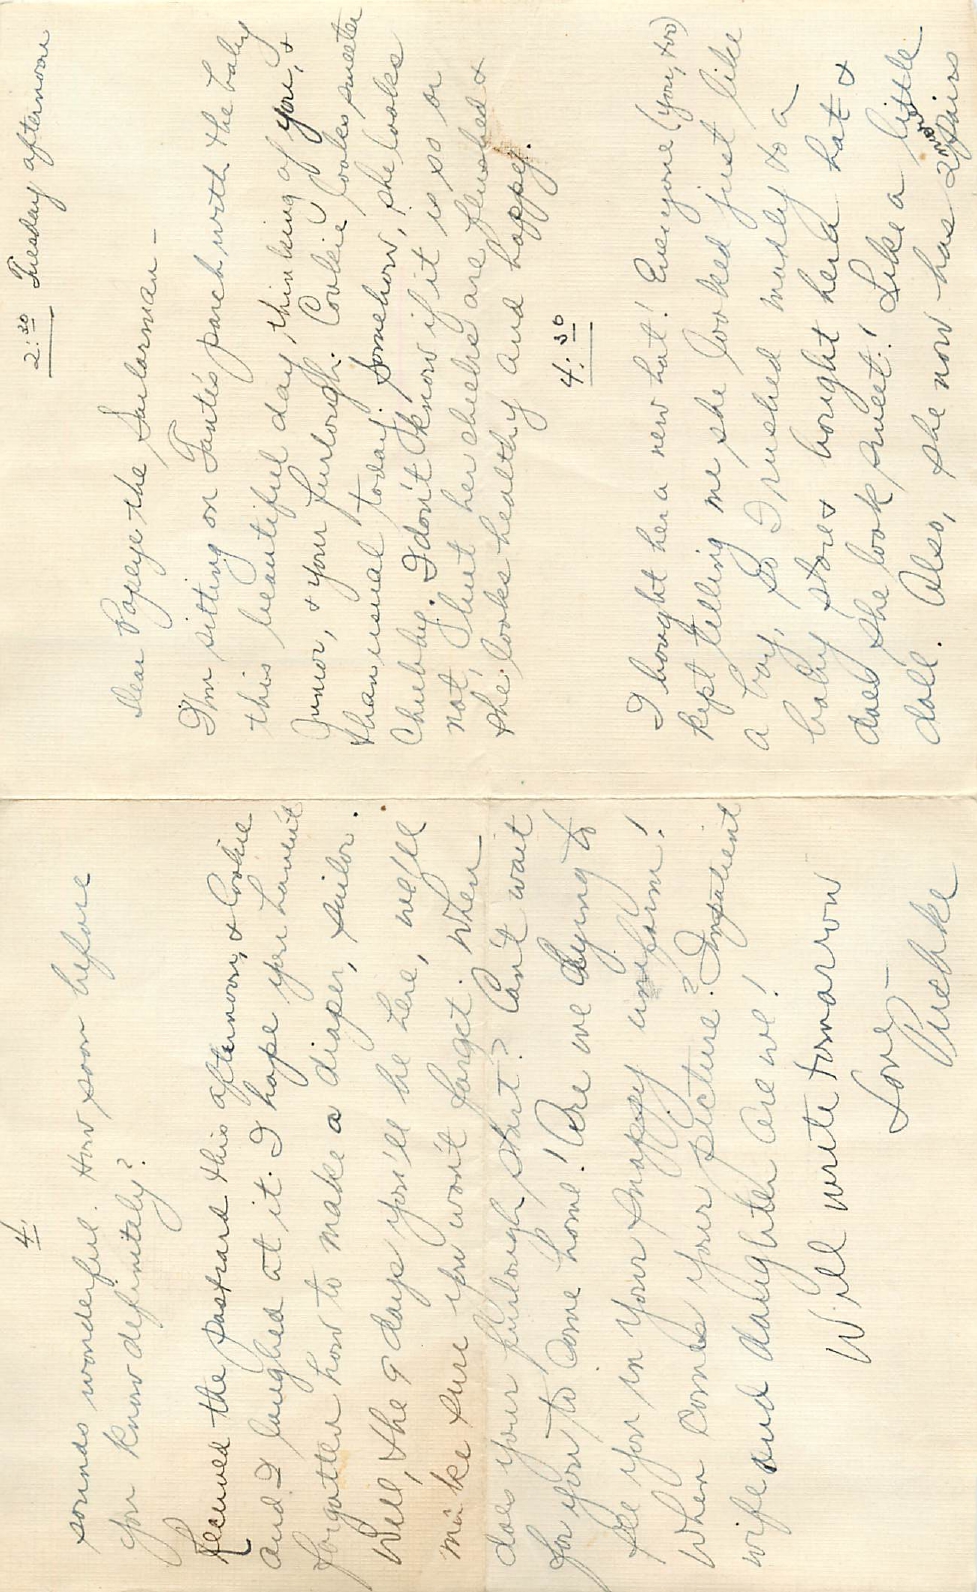 2:30 Tuesday afternoon
Dear Popeye the Sailorman -
I'm sitting on Tante's porch, with the baby
this beautiful day, thinking of you, &
Junior, & your furlough. Cookie looks sweeter
than usual today. Somehow, she looks
chubby. I don't know if it is so or
not, but her cheeks are flushed &
she looks healthy and happy.
4:30
I bought her a new hat! Everyone (you, too)
kept telling me she looked just like
a boy, so I rushed madly to a
baby store & bought her a hat &
does she look sweet! Like a little
doll. Also, she now has 2 more pairs
4.
sounds wonderful. How soon before
you know definitely?
Received the postcard this afternoon, & Cookie
and I laughed at it. I hope you haven't
forgotten how to make a diaper, sailor.
Well, the 9 days you'll be here, we'll
make sure you won't forget. When
does your furlough start? Can't wait
for you to come home! Are we dying to
see you in your snappy uniform!
When comes your picture? Impatient
wife and daughter are we!
Will write tomorrow
Love -